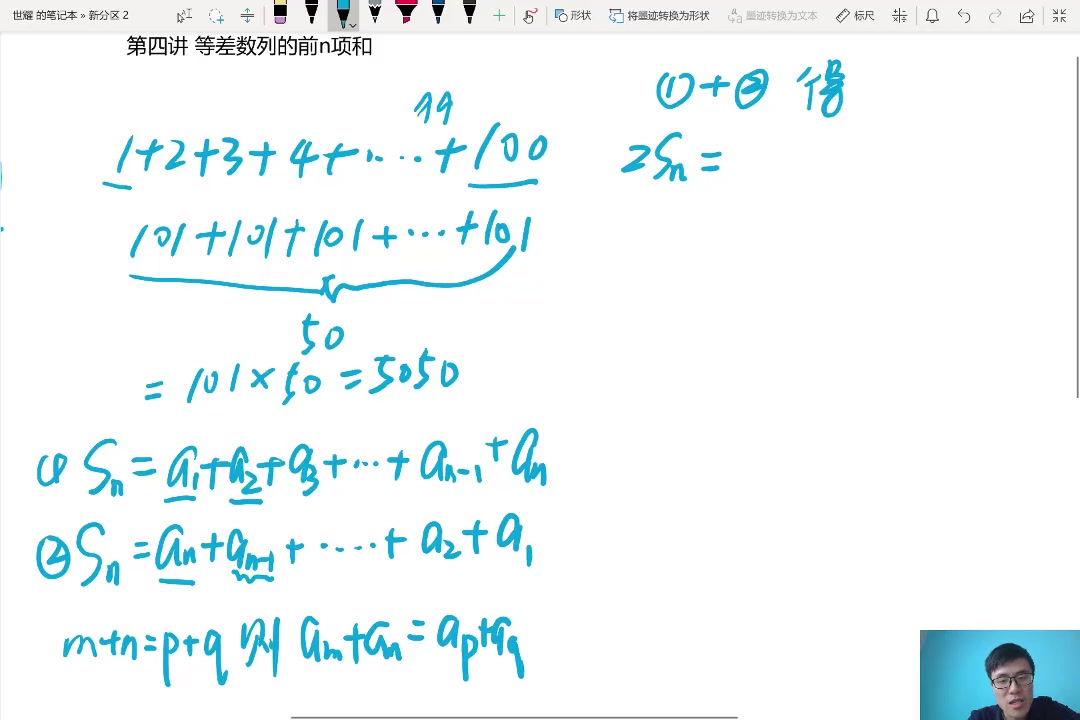 世耀 的笔记本 » 新分区 2
形状 将墨迹转换为形状 墨迹转换为文本 标尺
第四讲 等差数列的前n项和
99
1+2+3+4+……+100
101+101+101+…+101
50
=101×50=5050
① Sn=a1+a2+a3+…+an-1+an
② Sn=an+an-1+……+a2+a1
m+n=p+q 则 am+an=ap+aq
①+② 得
2Sn=